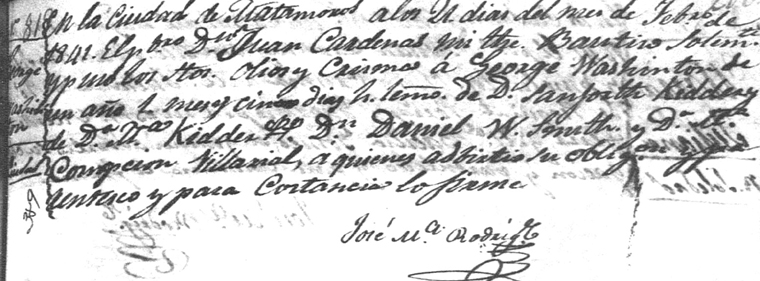 En la Ciudad de Matamoros a los 21 dias del mes de Febro. de
1841. El pbro D. Juan Cardenas mi the. Bautiso solemte.
y puso los Stos. Olios y Crisma a George Washington de
un año 1 mes y cinco dias h. lemo. de D. Sanforth Kidder y
de Da. Kidder pp. Dn Daniel W. Smith y Da.
Compcion Villarial, a quienes adbirtio su oblign. y
rentesco y para Costancia lo firme
José Ma. Rodrigz